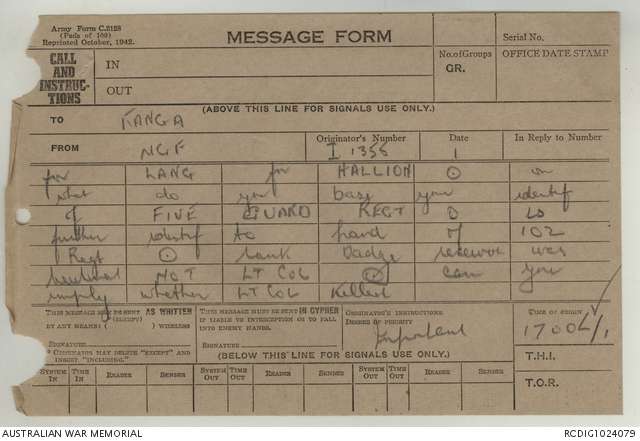 Army Form C.2128
(Pads of 100)
Reprinted October, 1942.
MESSAGE FORM
Serial No.
CALL AND INSTRUCTIONS
IN
OUT
No. of Groups
GR.
OFFICE DATE STAMP
(ABOVE THIS LINE FOR SIGNALS USE ONLY.)
TO KANGA
FROM NGF
Originator's Number I 1355
Date 1
In Reply to Number
for LANG for HALLION on
what do you base your identif
of FIVE GUARD REGT
further identif to hand of 102
Regt rank badge was
NOT LT COL can you
whether LT COL Killed
THIS MESSAGE MAY BE SENT AS WRITTEN
(EXCEPT)
BY ANY MEANS ( ) WIRELESS
SIGNATURE
* ORIGINATOR MAY DELETE "EXCEPT" AND
INSERT "INCLUDING."
THIS MESSAGE MUST BE SENT IN CYPHER
IF LIABLE TO INTERCEPTION OR TO FALL
INTO ENEMY HANDS.
SIGNATURE
ORIGINATOR'S INSTRUCTIONS.
DEGREE OF PRIORITY
Important
TIME OF ORIGIN
1700L/1
T.H.I.
T.O.R.
(BELOW THIS LINE FOR SIGNALS USE ONLY.)
SYSTEM IN TIME IN READER SENDER SYSTEM OUT TIME OUT READER SENDER SYSTEM OUT TIME OUT READER SENDER
AUSTRALIAN WAR MEMORIAL
RCDIG1024079